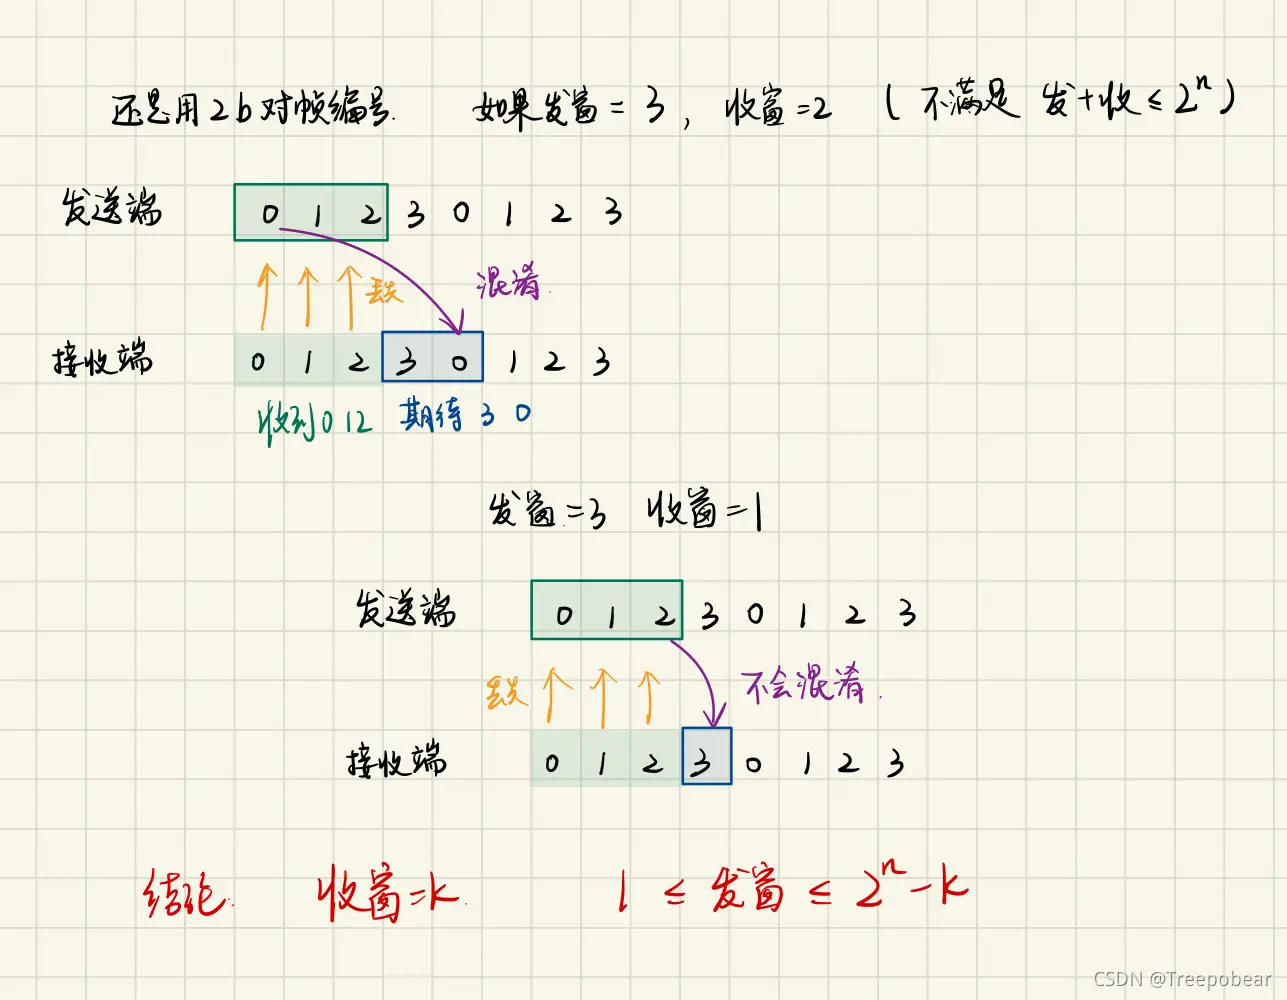 还是用2b对帧编号. 如果发窗=3, 收窗=2 (不满足 发+收≤2ⁿ)
发送端 0 1 2 3 0 1 2 3
丢失 混淆.
接收端 0 1 2 3 0 1 2 3
收到012 期待 3 0
发窗=3 收窗=1
发送端 0 1 2 3 0 1 2 3
丢失 不会混淆.
接收端 0 1 2 3 0 1 2 3
结论. 收窗=k. 1 ≤ 发窗 ≤ 2ⁿ-k
CSDN @Treepobear